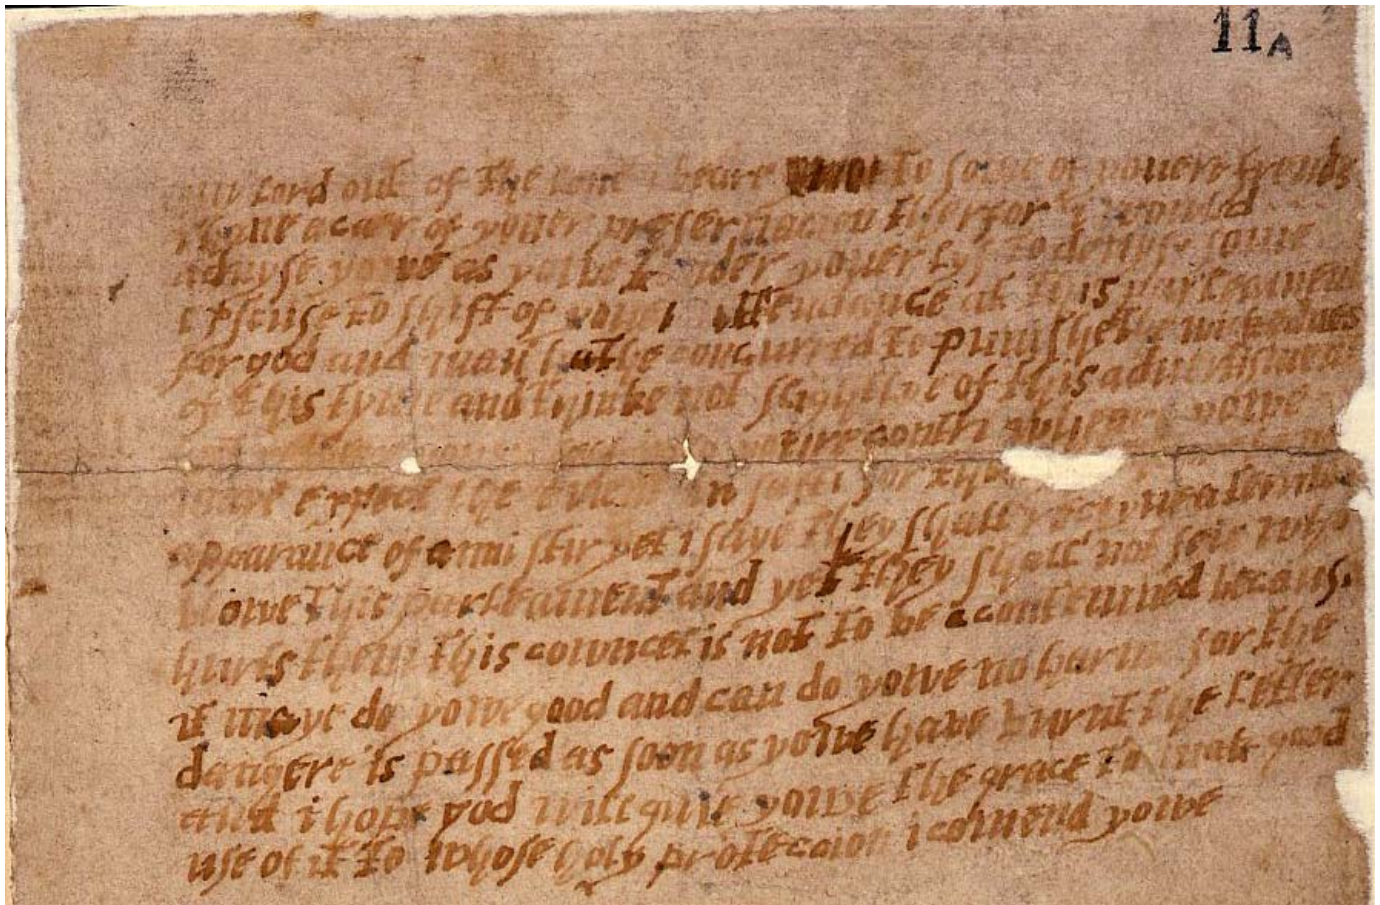 11A
my lord out of the love i beare yowe to some of youere frends
i have a caer of youer preservacion therfor i would
advyse yowe as yowe tender youer lyf to devyse some
exscuse to shift of youer attendance at this parleament
for god and man hathe concurred to punishe the wickednes
of this tyme and thinke not slightlye of this advertisment
youre contri wheare yowe
maye expect the event in safti for
apparance of anni stir yet i saye they shall receyve a terrible
blowe this parleament and yet they shall not seie who
hurts them this councel is not to be acontemned because
it maye do yowe good and can do yowe no harme for the
dangere is passed as soon as yowe have burnt the letter
and i hope god will give yowe the grace to mak good
use of it to whose holy proteccion i comend yowe